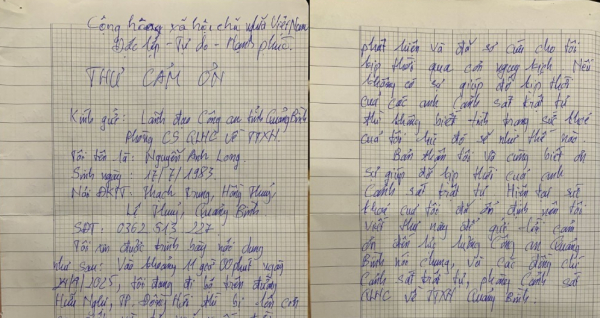 Cộng hòa xã hội chủ nghĩa Việt Nam
Độc lập - Tự do - Hạnh phúc.
THƯ CẢM ƠN
Kính gửi: Lãnh đạo Công an tỉnh Quảng Bình
Phòng CS QLHC về TTXH.
Tôi tên là: Nguyễn Anh Long.
Sinh ngày: 17/7/1983
Nơi ĐKTT: Thạch Trung, Hồng Thuỷ,
Lệ Thuỷ, Quảng Bình
SĐT: 0362 513 227
Tôi xin được trình bày nội dung
như sau: Vào khoảng 11 giờ 00 phút ngày
/2025, tôi đang đi bộ trên đường
Hữu Nghị, TP. Đồng Hới thì bị lên cơn
phát hiện và đã sơ cứu cho tôi
kịp thời qua cơn nguy kịch. Nếu
không có sự giúp đỡ kịp thời
của các anh Cảnh sát trật tự
thì không biết tình trạng sức khoẻ
của tôi lúc đó sẽ như thế nào.
Bản thân tôi vô cùng biết ơn
sự giúp đỡ kịp thời của anh
Cảnh sát trật tự. Hiện tại sức
khoẻ của tôi đã ổn định nên tôi
viết thư này để gửi lời cảm
ơn đến lực lượng Công an Quảng
Bình nói chung, và các đồng chí
Cảnh sát trật tự, phòng Cảnh sát
QLHC về TTXH Quảng Bình.